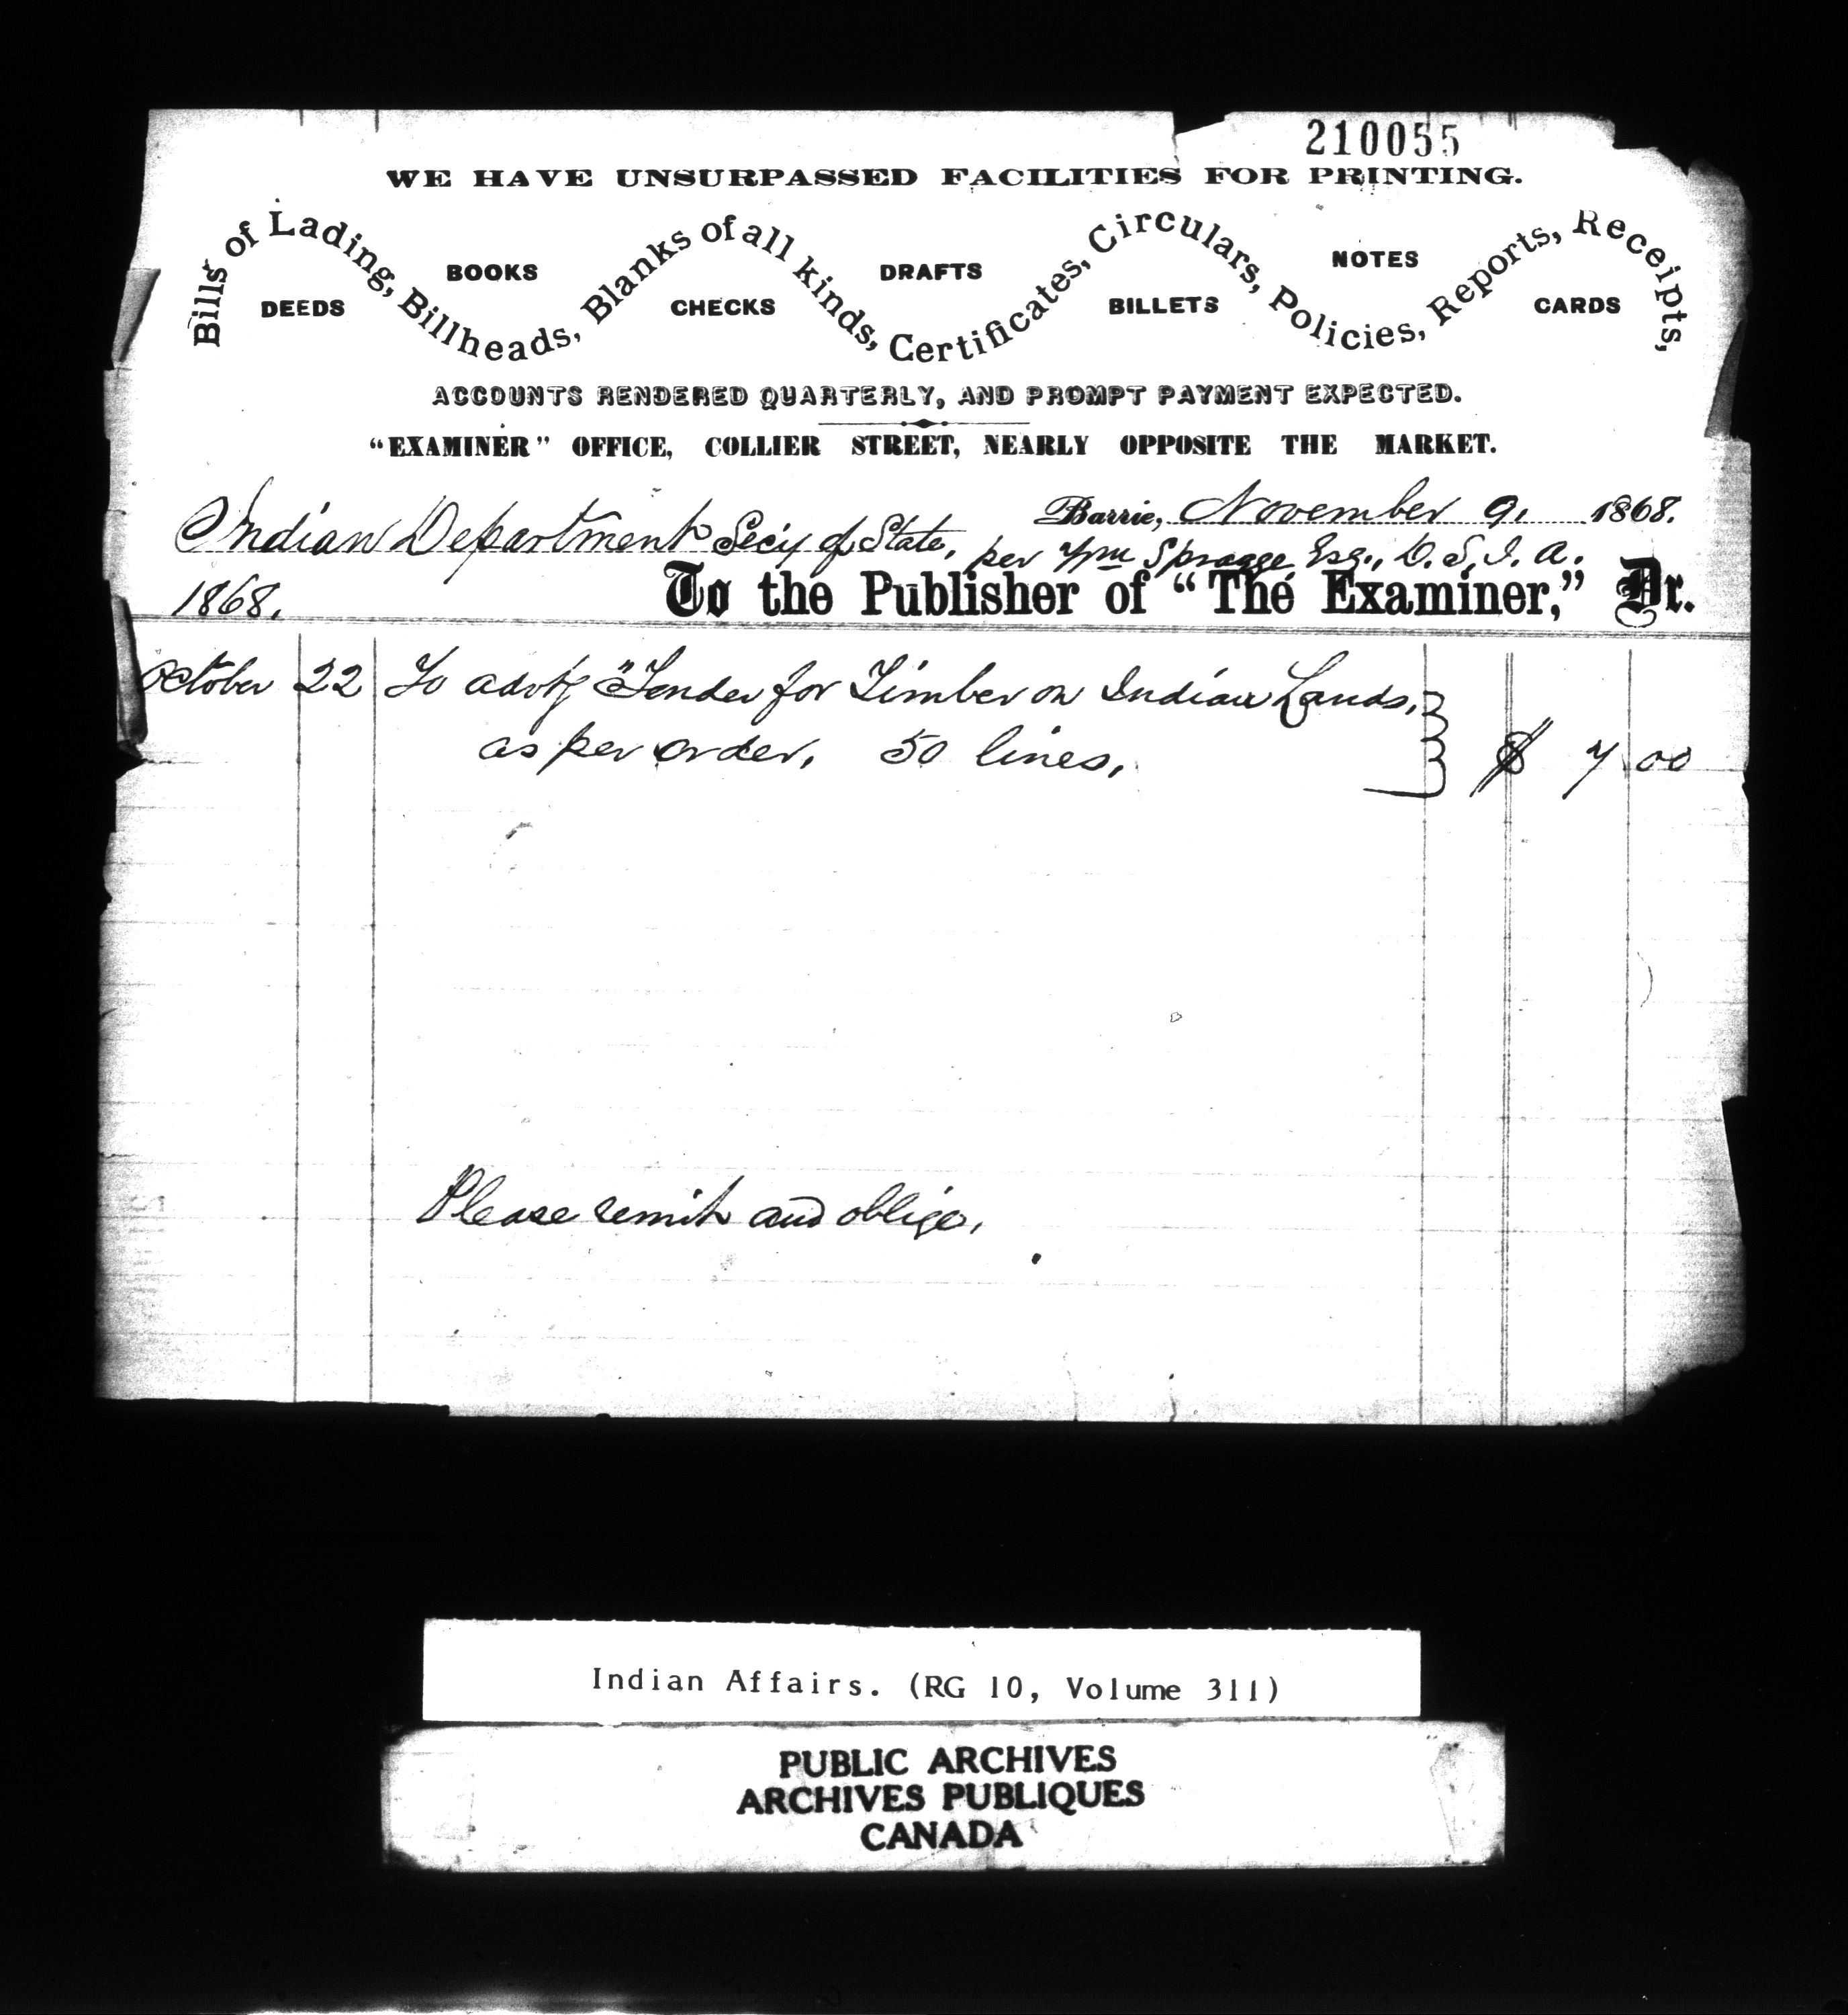 210055
WE HAVE UNSURPASSED FACILITIES FOR PRINTING.
Bills of Lading, Billheads, Blanks of all kinds, Certificates, Circulars, Policies, Reports, Receipts,
BOOKS DRAFTS NOTES
DEEDS CHECKS BILLETS CARDS
ACCOUNTS RENDERED QUARTERLY, AND PROMPT PAYMENT EXPECTED.
"EXAMINER" OFFICE, COLLIER STREET, NEARLY OPPOSITE THE MARKET.
Barrie, November 9, 1868.
Indian Department Secy of State, per Wm Spragge Esq., D. S. I. A.
1868. To the Publisher of "The Examiner," Dr.
October 22 To advtg "Tender for Timber on Indian Lands,
as per order, 50 lines, $ 7 00
Please remit and oblige.
Indian Affairs. (RG 10, Volume 311)
PUBLIC ARCHIVES
ARCHIVES PUBLIQUES
CANADA